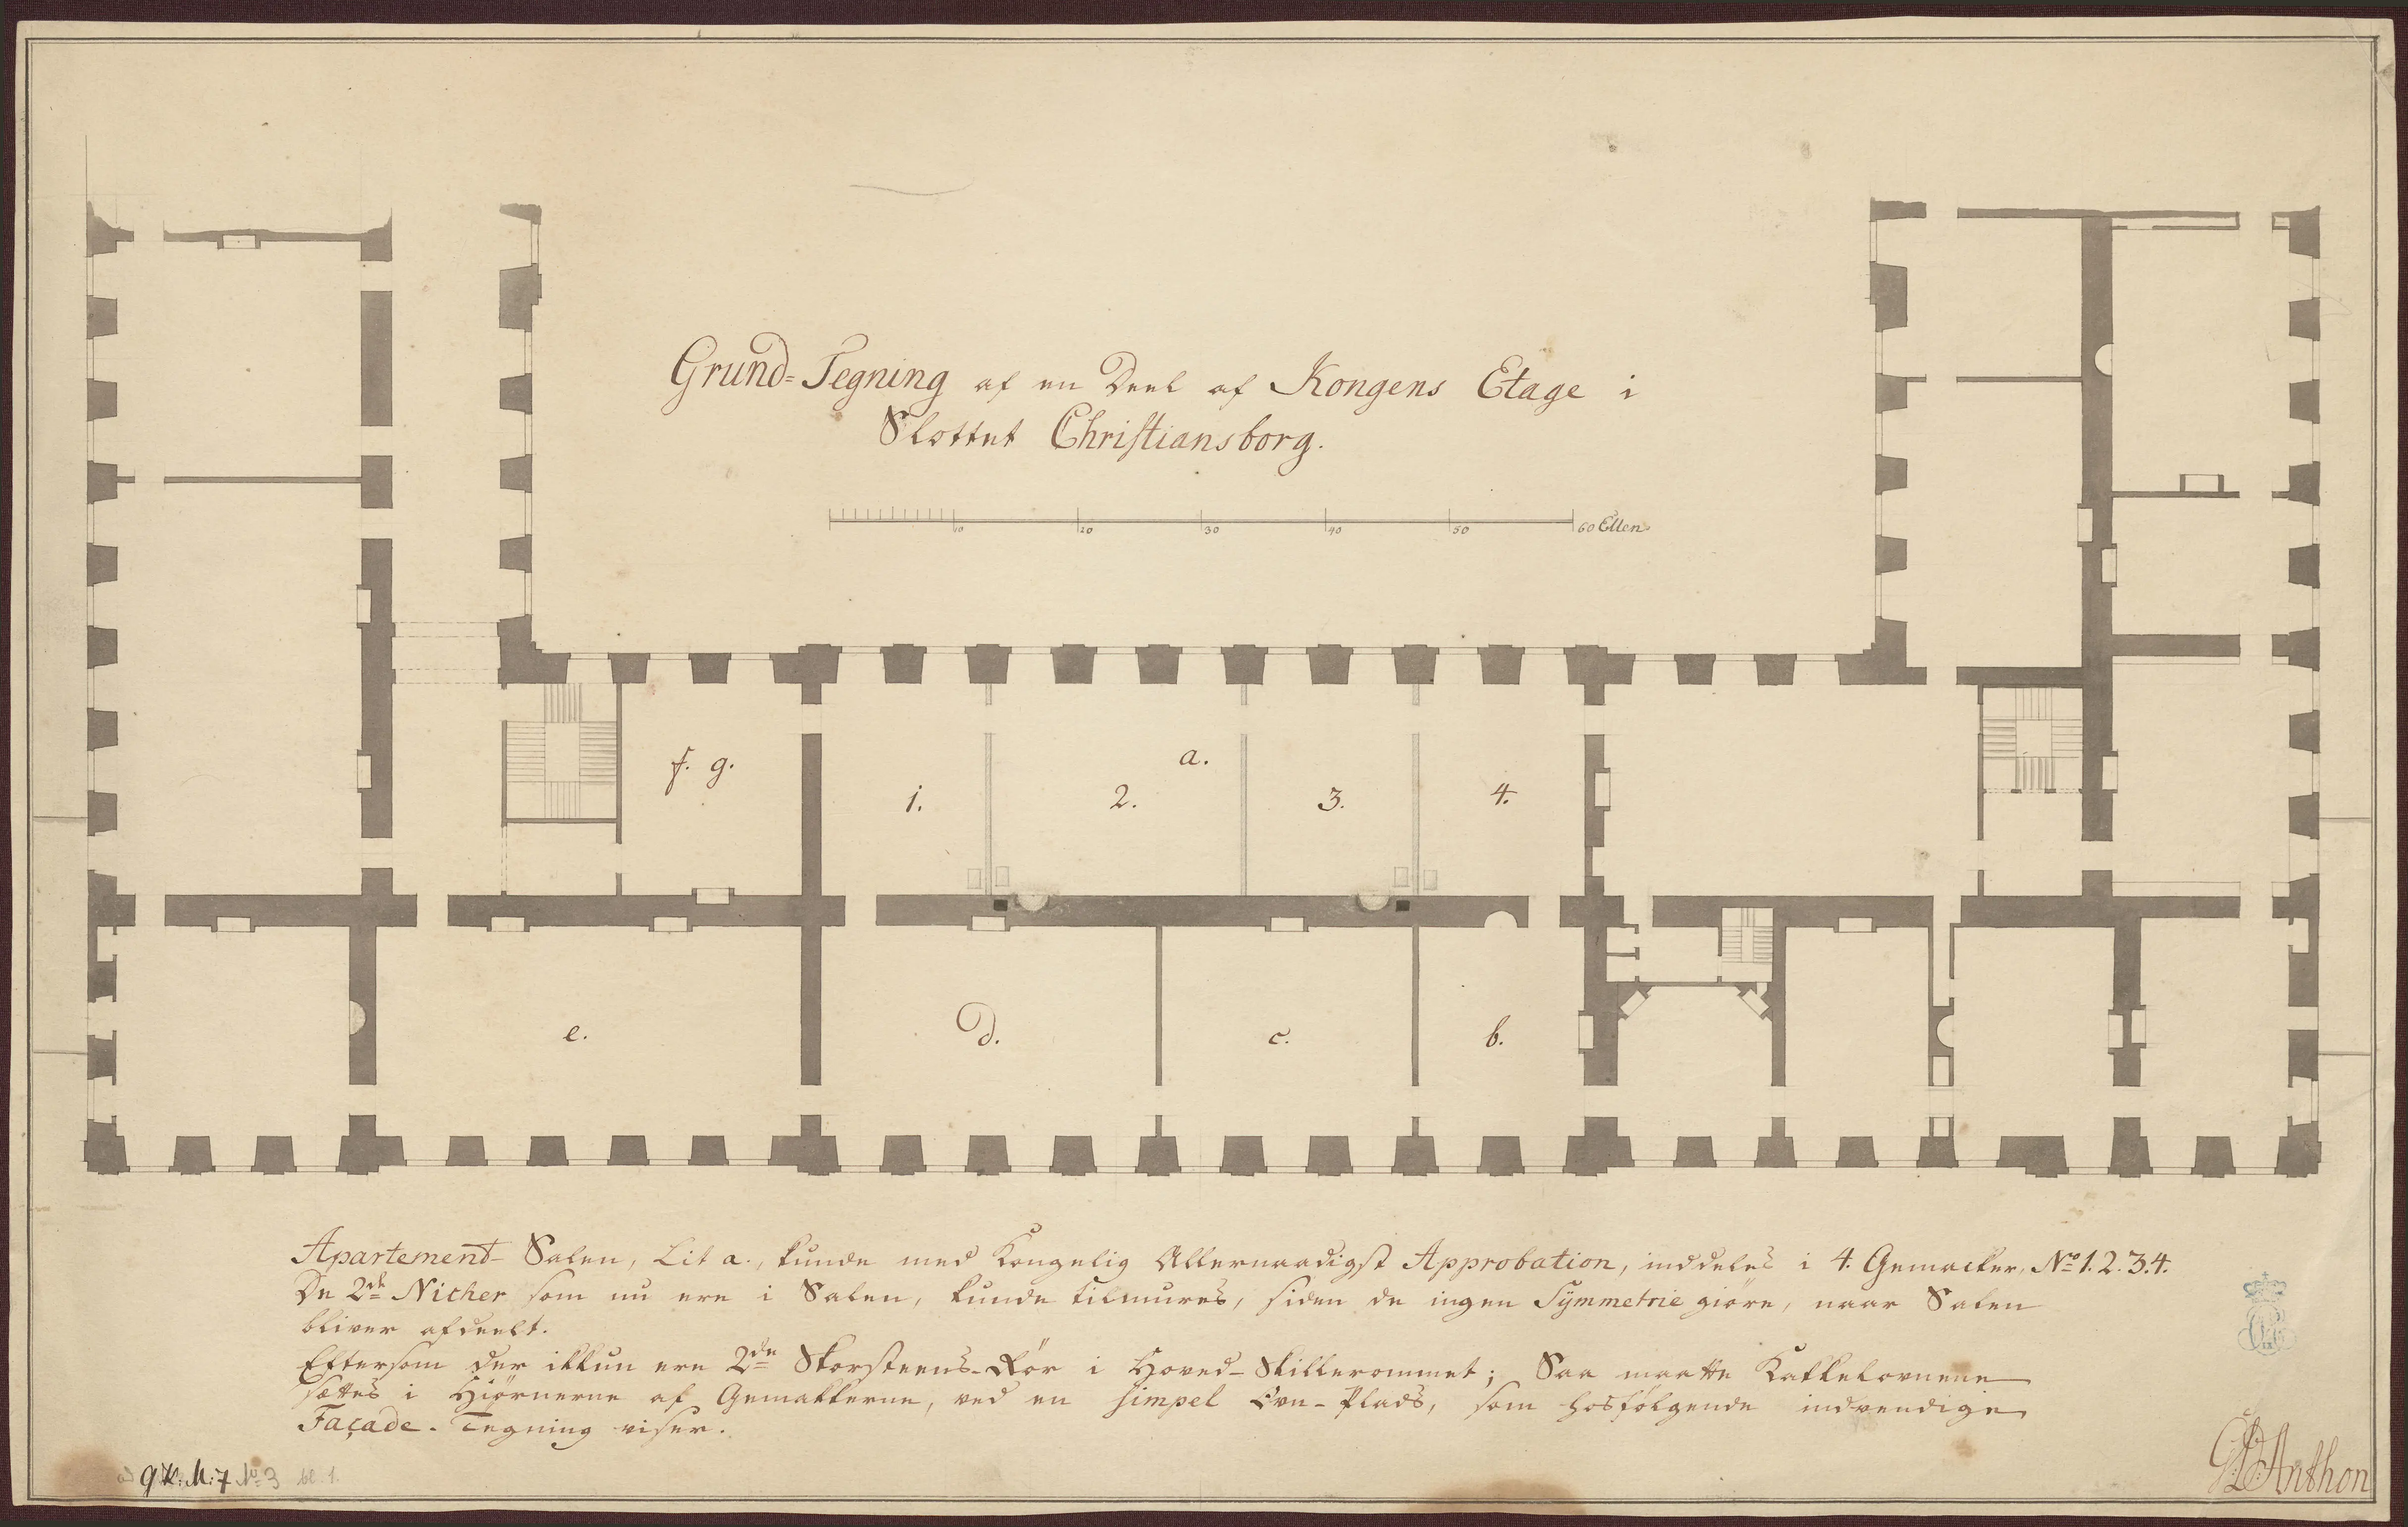 Grund-Tegning af en Deel af Kongens Etage i
Slottet Christiansborg.
10 20 30 40 50 60 Ellen
f. g.
a.
1. 2. 3. 4.
e. d. c. b.
Apartement-Salen, Lit a., kunde med Kongelig Allernaadigst Approbation, inddeles i 4. Gemacker, No 1. 2. 3. 4.
De 2de Nicher som nu ere i Salen, kunde tilmures, siden de ingen Symmetrie giöre, naar Salen
bliver afdeelt.
Eftersom der ikkun ere 2de Skorsteens-Rör i Hoved-Skillerommet; Saa maatte Kakkelovnene
sættes i Hiörnerne af Gemakkerne, ved en simpel Ovn-Plads, som hosfölgende indvendige
Façade-Tegning viser.
GDAnthon
ad gK: M: 7 No 3 bl. 1.